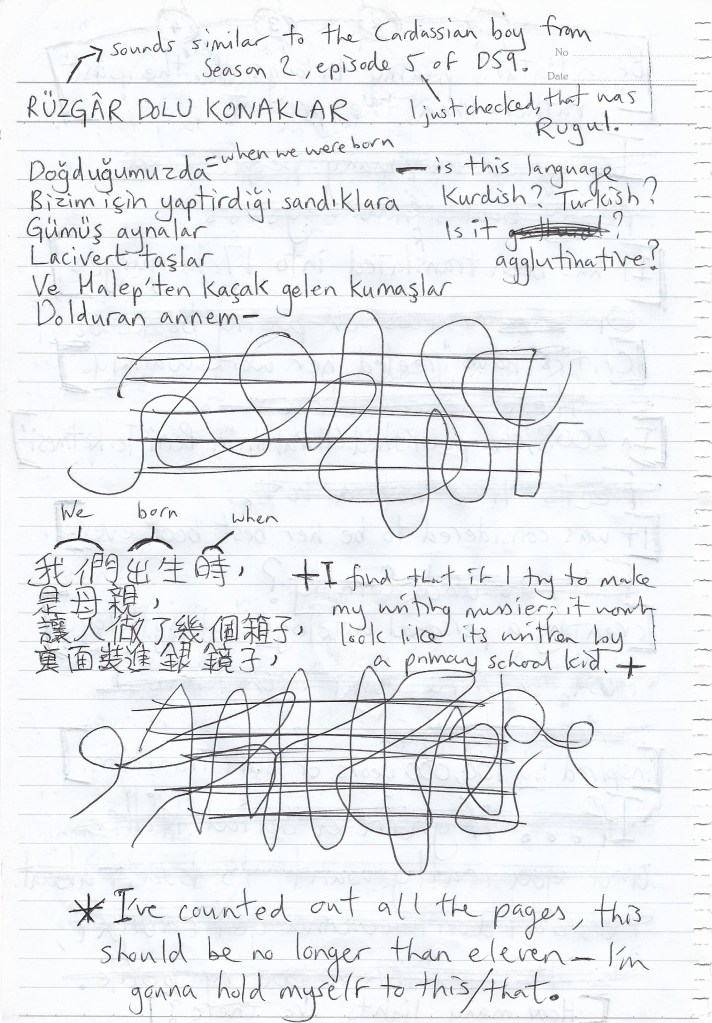 sounds similar to the Cardassian boy from
Season 2, episode 5 of DS9.
No
Date
RÜZGÂR DOLU KONAKLAR
I just checked, that was
Rugul.
Doğduğumuzda = when we were born
— is this language
Bizim için yaptirdiği sandıklara
Kurdish? Turkish?
Gümüş aynalar
Is it ?
Lacivert taşlar
agglutinative?
Ve Halep'ten kaçak gelen kumaşlar
Dolduran annem—
We born when
我們出生時，
是母親，
讓人做了幾個箱子，
裏面裝進銀鏡子，
+ I find that if I try to make
my writing messier, it won't
look like it's written by
a primary school kid. +
* I've counted out all the pages, this
should be no longer than eleven — I'm
gonna hold myself to this/that.